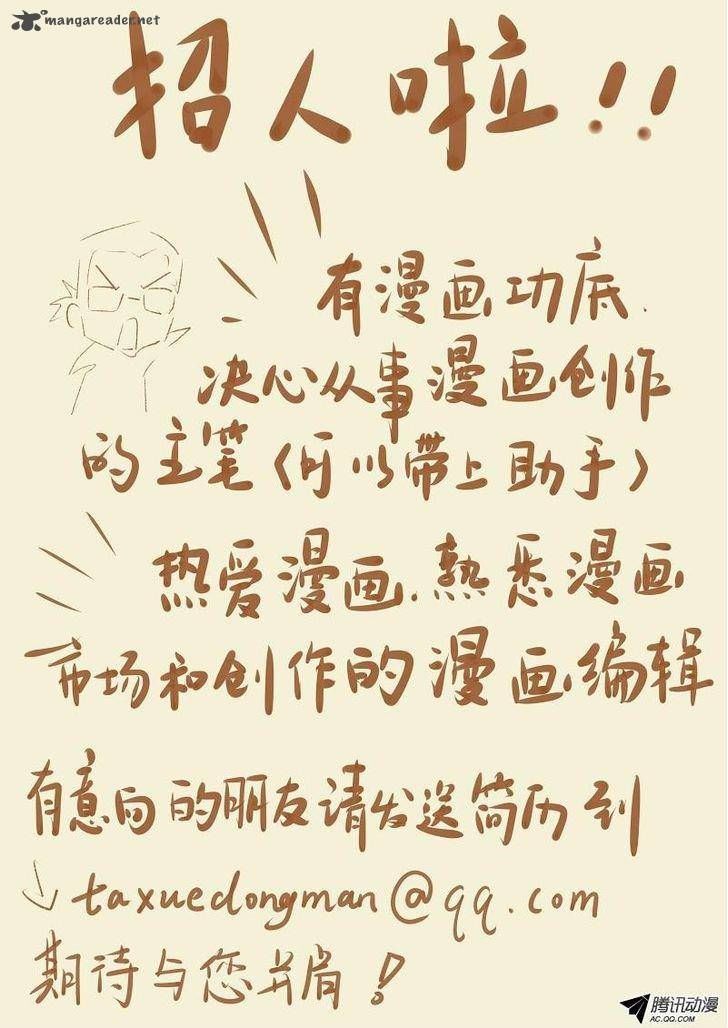 mangareader.net
招人啦!!
有漫画功底.
决心从事漫画创作
的主笔(可以带上助手)
热爱漫画.熟悉漫画
市场和创作的漫画编辑
有意向的朋友请发送简历到
↓taxuedongman@qq.com
期待与您并肩!
腾讯动漫
AC.QQ.COM